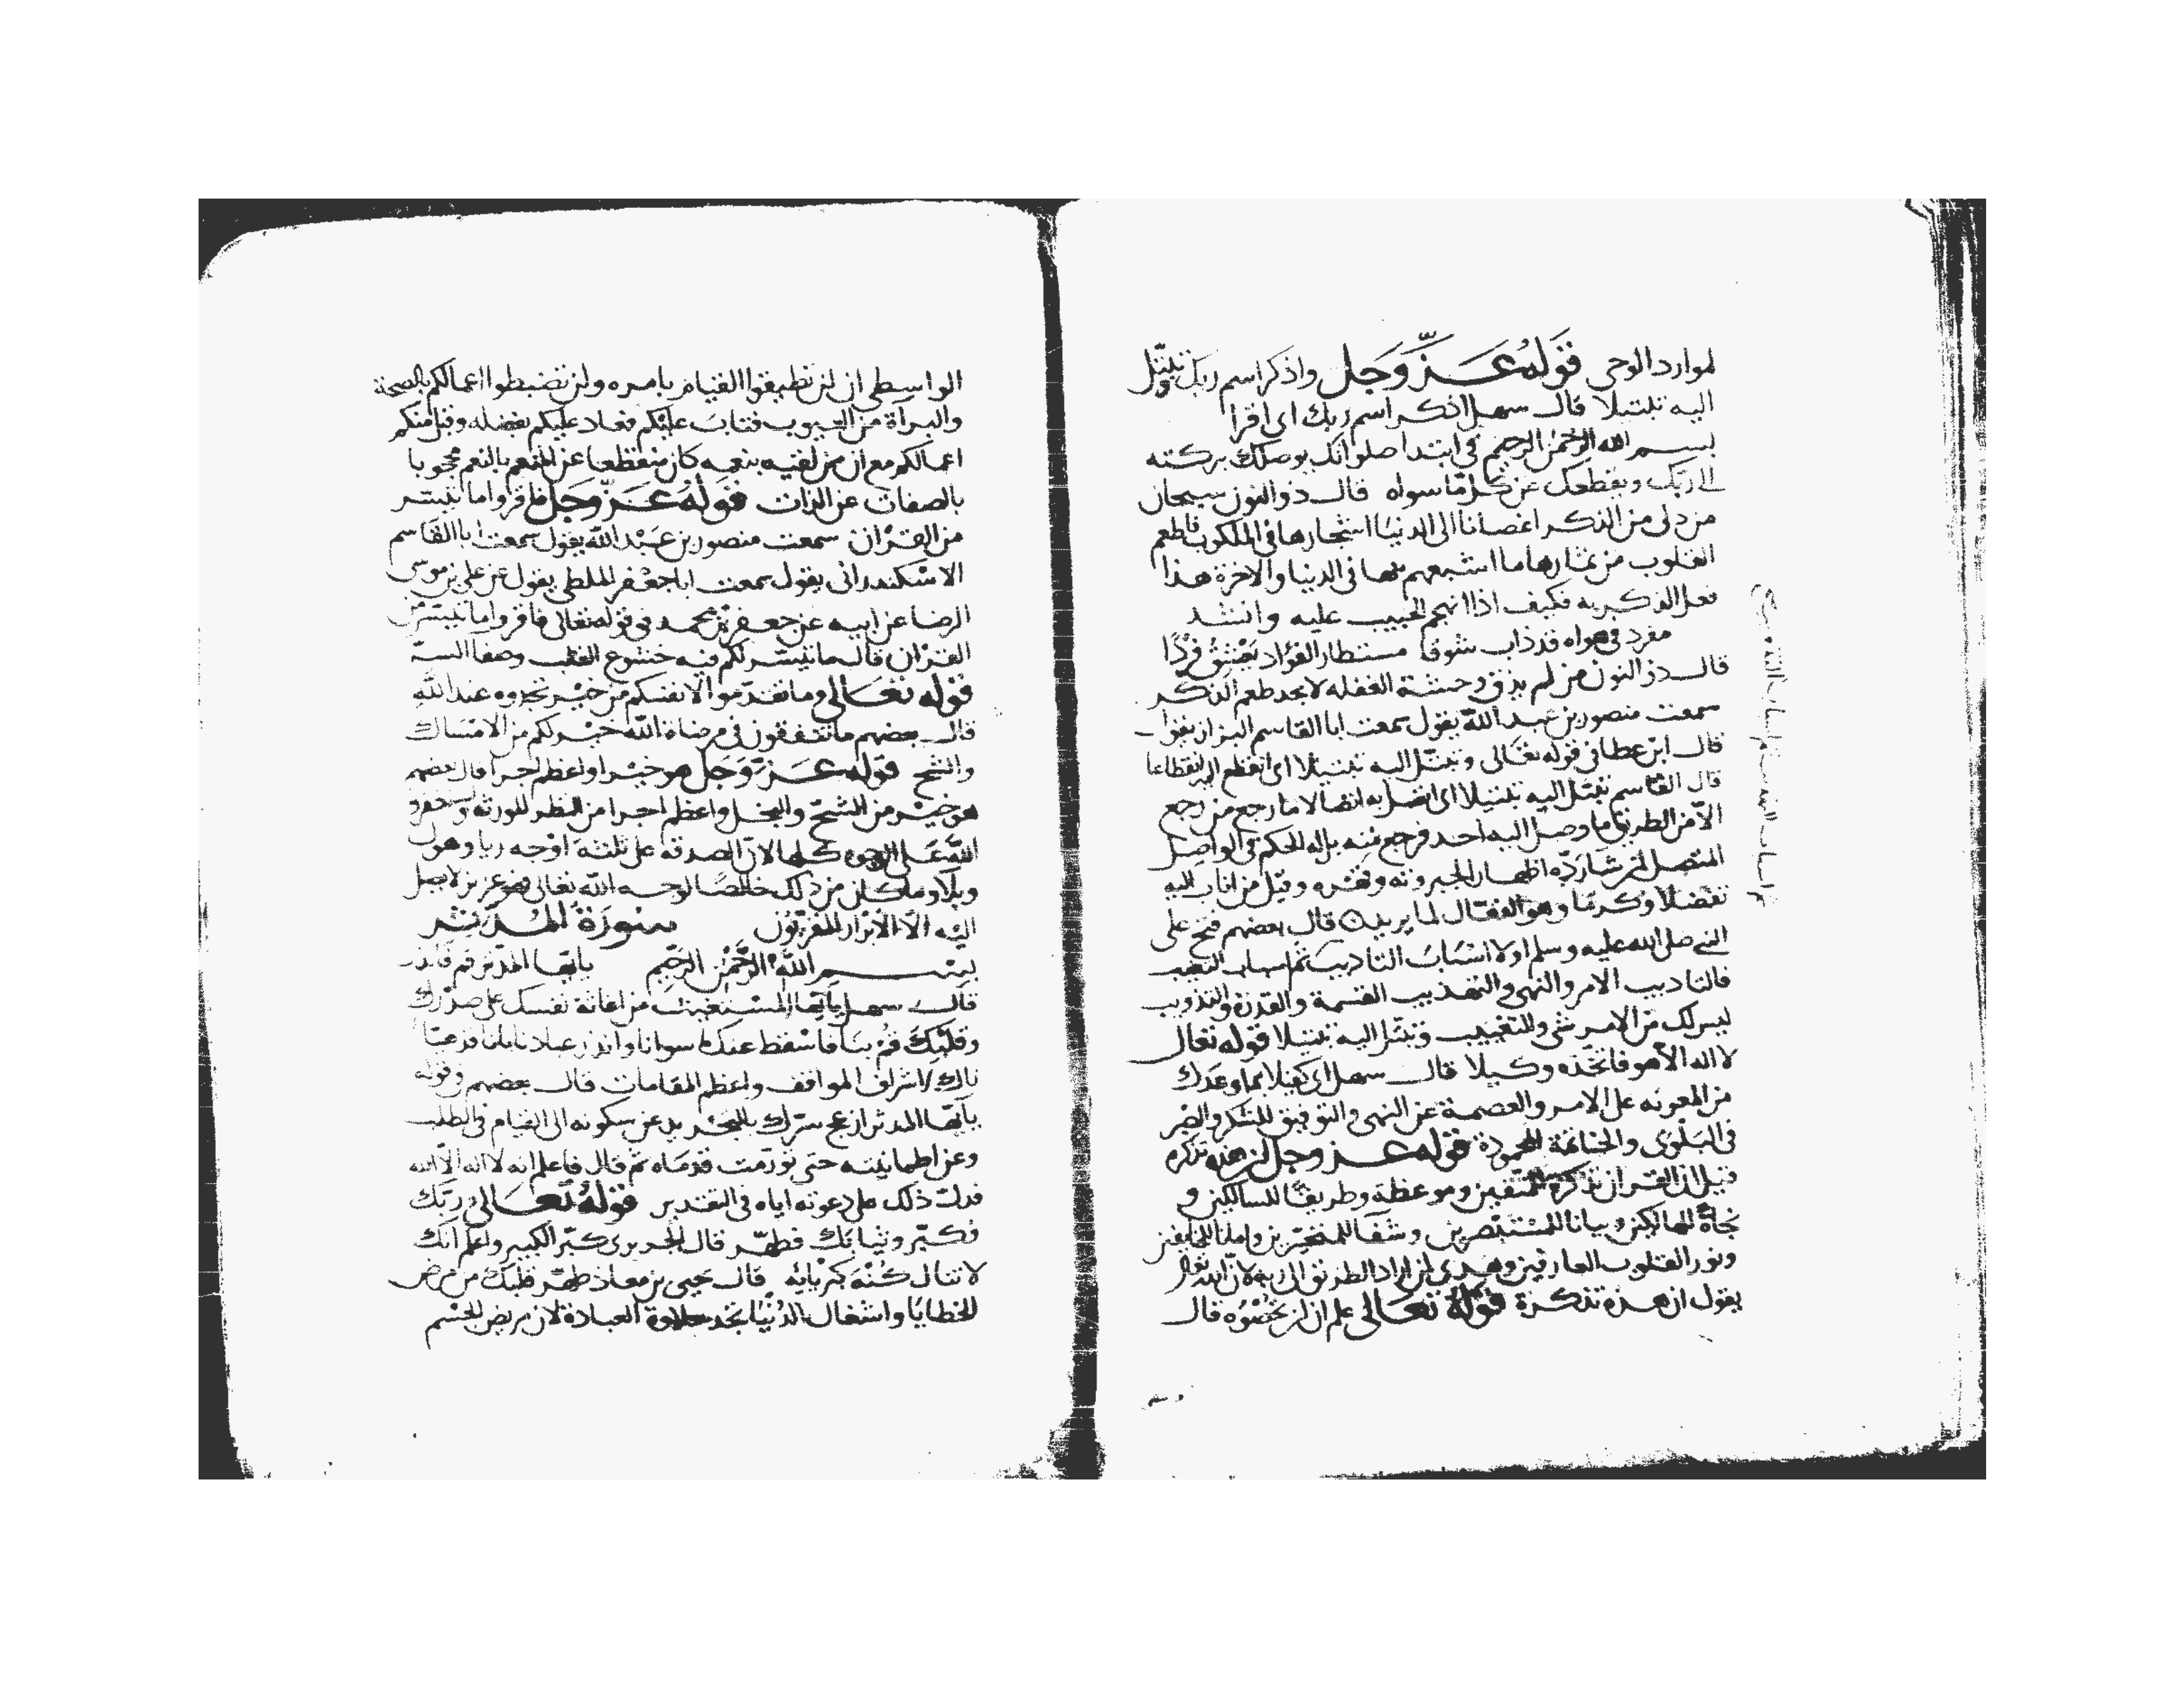 لموارد الوحي قوله عز وجل واذكر اسم ربك وتبتل
اليه تبتيلا قال سهل اذكر اسم ربك اى اقرا
بسم الله الرحمن الرحيم في ابتدا صلواتك يوصلك بركته
الى ربك ويقطعك عن كل ما سواه قال ذو النون سبحان
من دلى من الذكر اغصانا الى الدنيا اشجارها في الملكوت فاطعم
القلوب من ثمارها ما اشبعهم بها في الدنيا والاخرة هذا
فعل الذكر به فكيف اذا انهجم الحبيب عليه وانشد
مفرد في هواه قد ذاب شوقا مستطار الفؤاد يعشق فردا
قال ذو النون من لم يذق وحشة الغفله لا يجد طعم الذكر
سمعت منصور بن عبد الله يقول سمعت ابا القاسم البزاز يقول
قال ابن عطا في قوله تعالى وتبتل اليه تبتيلا اى انقطع اليه انقطاعا
قال القاسم تبتل اليه تبتيلا اى اتصل به اتصالا ما رجع من رجع
الا من الطريق ما وصل اليه احد فرجع عنه بل له الحكم في الواصل
المتصل لمن شا رده اظهار الجبروته وقهره وقبل من اناب اليه
تفضلا وكرما وهو الفعال لما يريد قال بعضهم فتح على
النبي صلى الله عليه وسلم اولا اسباب التاديب ثم اسباب
فالتاديب الامر والنهي والتهذيب القسمة والقدرة والتذويب
ليس لك من الامر شي والتغييب وتبتل اليه تبتيلا قوله تعالى
لا اله الا هو فاتخذه وكيلا قال سهل اى كفيلا بما وعدك
من المعونه على الامر والعصمة عن النهي والتوفيق للشكر والصبر
في البلوى والخاتمة المحمودة قوله عز وجل ان هذه تذكره
قيل ان القران تذكرة للمتقين وموعظة وطريقا للسالكين و
نجاة للهالكين وبيانا للمستبصرين وشفا للمتحيرين وامانا للخايفين
ونور القلوب العارفين وهدى لمن اراد الطريق الى ربه لان الله تعالى
يقول ان هذه تذكرة قوله تعالى علم ان لن تحصوه قال
الواسطى ان لن تطيقوا القيام بامره ولن تضبطوا اعمالكم بالصحة
والبراة من العيوب فتاب عليكم فعاد عليكم بفضله وقبل منكم
اعمالكم مع ان من لقيه بنعمه كان منقطعا عن المنعم بالنعم محجوبا
بالصفات عن الذات قوله عز وجل فاقروا ما تيسر
من القران سمعت منصور بن عبد الله يقول سمعت ابا القاسم
الاسكندرانى يقول سمعت ابا جعفر الملطى يقول عن علي بن موسى
الرضا عن ابيه عن جعفر بن محمد في قوله تعالى فاقروا ما تيسر من
القران قال ما تيسر لكم فيه خشوع القلب وصفا السر
قوله تعالى وما تقدموا لانفسكم من خير تجدوه عند الله
قال بعضهم ما تنفقون في مرضاة الله خير لكم من الامساك
والشح قوله عز وجل هو خيرا واعظم اجرا قال بعضهم
هو خير من الشح والبخل واعظم اجرا من النظر للورثة
الله على الوجوه كلها لان الصدقه على ثلثه اوجه ريا وهو
وبلا وما كان من ذلك خالصا لوجه الله تعالى فهو عزيز لا يصل
اليه الا الابرار المقربون سورة المدثر
بسم الله الرحمن الرحيم يايها المدثر قم فانذر
قال سهل يايها المستغيث من اغاثة نفسك على صدرك
وقلبك قم بنا فاسقط عنك ما سوانا وانذر عبادنا بانا قد هيانا
لك اشرف المواقف واعظم المقامات قال بعضهم وقوله
يايها المدثر ازعج سرك بالتجريد عن سكونه الى القيام في الطلب
وعن اطمانيته حتى تورمت قدماه ثم قال فاعلم انه لا اله الا الله
فدلت ذلك على دعوته اياه في التقدير قوله تعالى ربك
فكبر وثيابك فطهر قال الجريرى كبر الكبير واعلم انك
لا تنال كنه كبريايه قال يحيى بن معاذ طهر قلبك من مرض
الخطايا واشغال الدنيا تجد حلاوة العبادة لان مريض الجسم